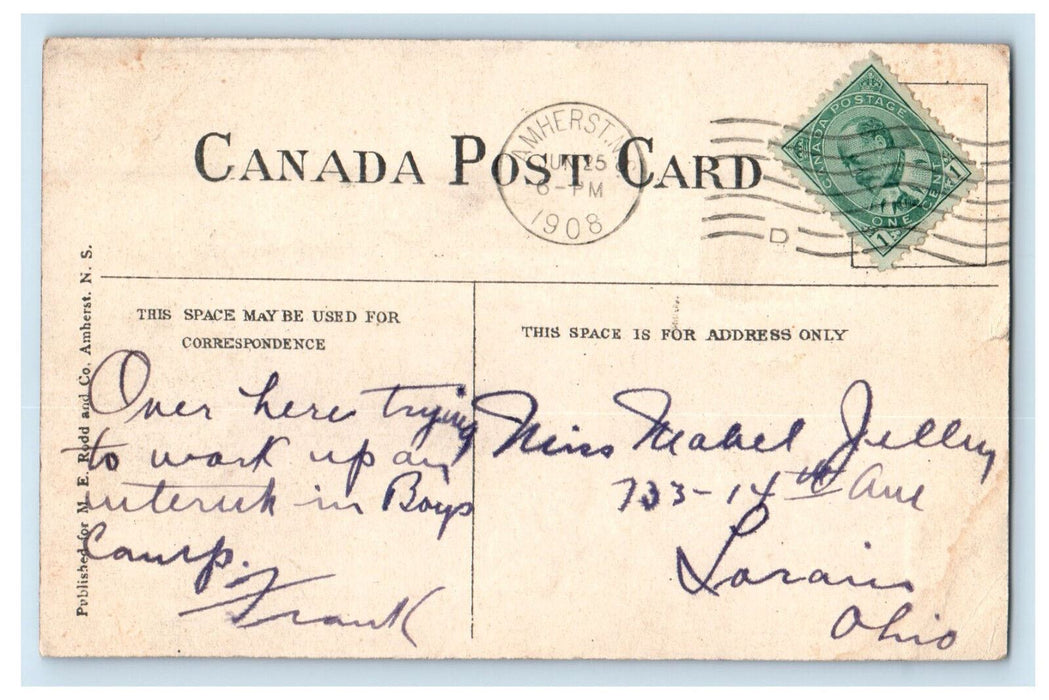 CANADA POST CARD
AMHERST, N.S.
JUN 25
6-PM
1908
D
CANADA POSTAGE
ONE CENT
1
1
THIS SPACE MAY BE USED FOR
CORRESPONDENCE
THIS SPACE IS FOR ADDRESS ONLY
Published for M. E. Rodd and Co. Amherst. N. S.
Over here trying
to work up an
interest in Boys
Camp.
Frank
Miss Mabel Jelley
733-14th Ave
Lorain
Ohio